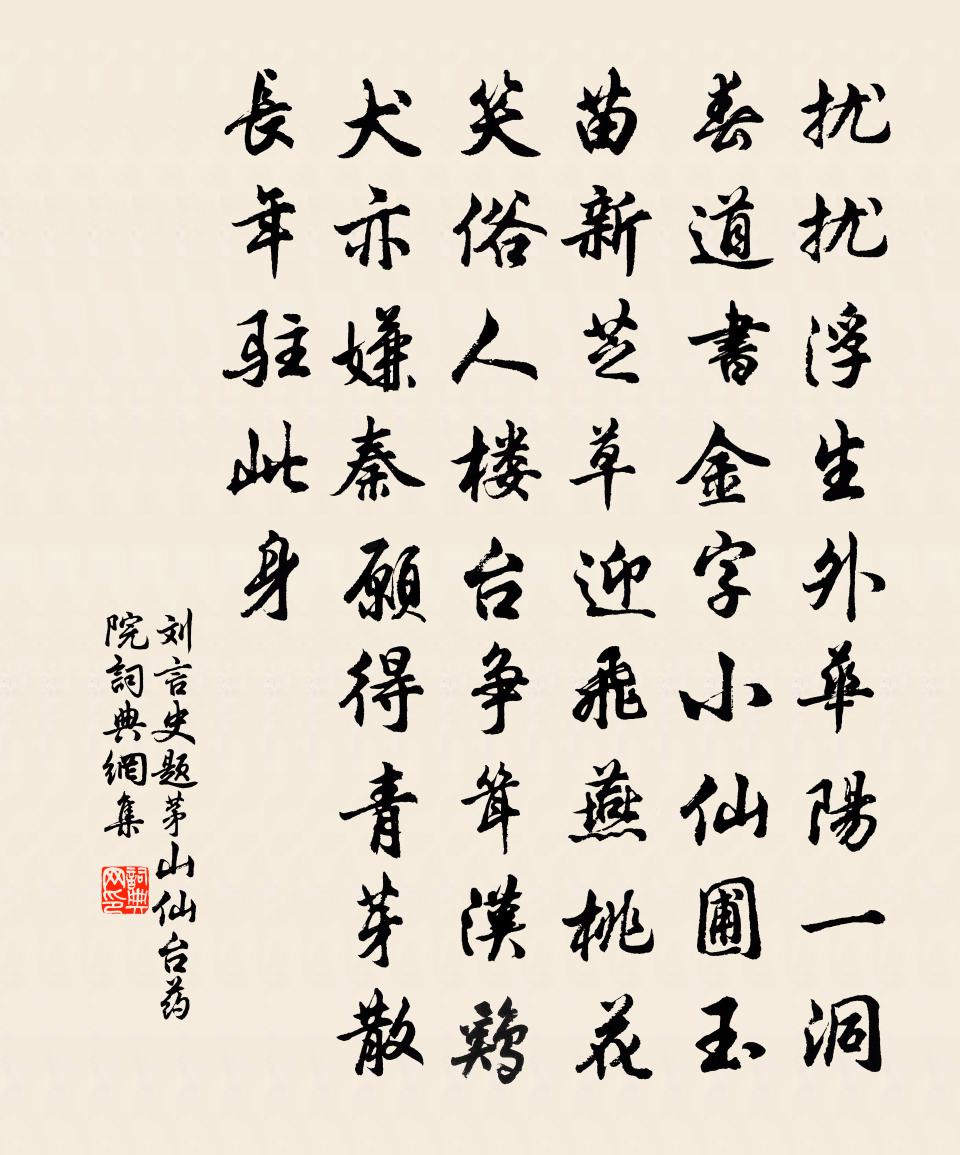 扰扰浮生外華陽一洞
春道書金字小仙圃玉
苗新芝草迎飛燕桃花
笑俗人楼台争耸漢鷄
犬亦嫌秦願得青芽散
長年駐此身
刘言史题茅山仙台药
院詞典網集
詞典网印